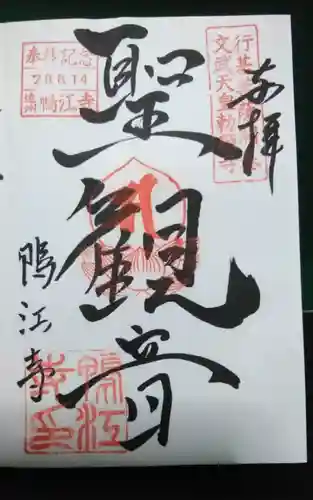 行基菩薩開基
文武天皇勅願寺
奉拝
聖観音
鴨江寺
参拝記念
鴨江寺
鴨江
寺印